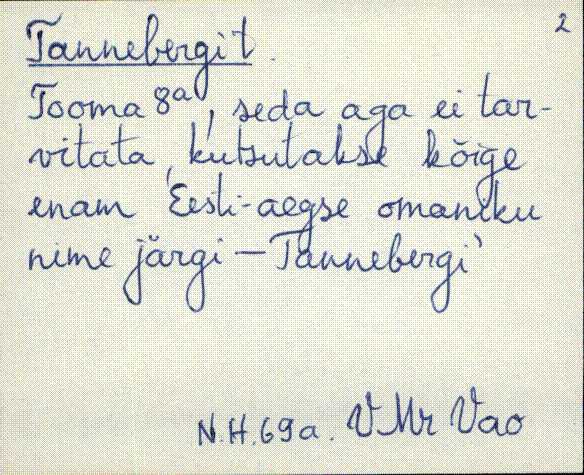 2
Tannebergi t.
Tooma 8a, seda aga ei tar-
vitata, kutsutakse kõige
enam Eesti-aegse omaniku
nime järgi — Tannebergi'
N.H.69a. VMr Vao